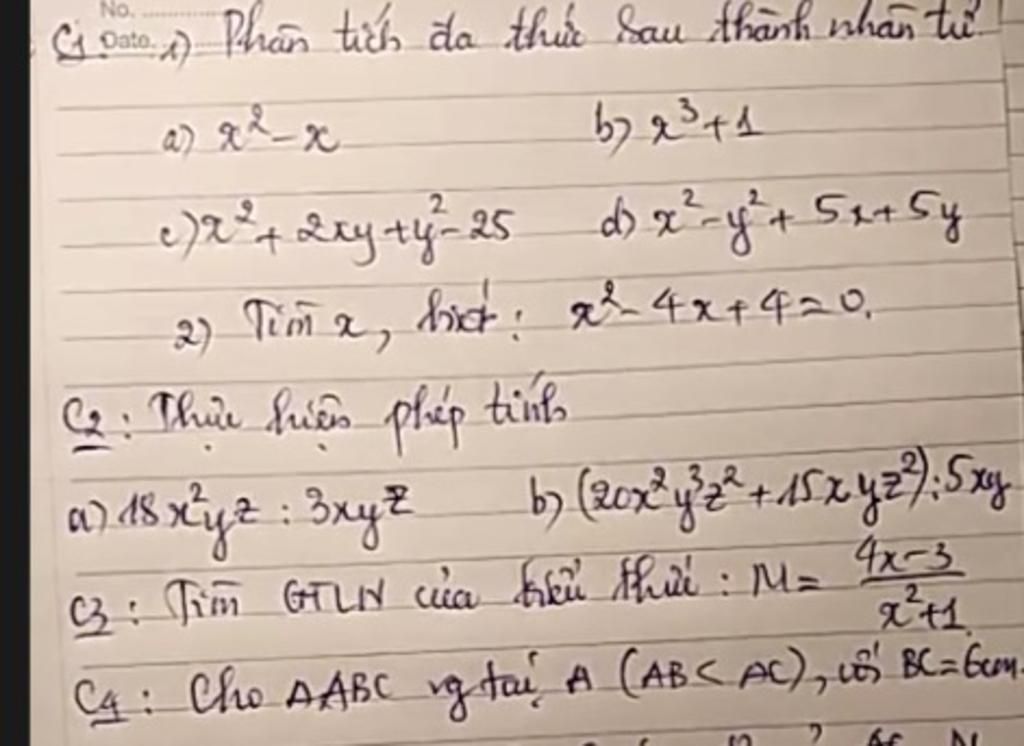 No.
Date.
C1. 1) Phân tích đa thức sau thành nhân tử.
a) x² - x b) x³ + 1
c) x² + 2xy + y² - 25 d) x² - y² + 5x + 5y
2) Tìm x, biết: x² - 4x + 4 = 0.
C2: Thực hiện phép tính
a) 18x²yz : 3xyz b) (20x²y³z² + 15xyz²) : 5xy
C3: Tìm GTLN của biểu thức: M = (4x-3)/(x²+1)
C4: Cho ΔABC vg tại A (AB < AC), với BC = 6cm.